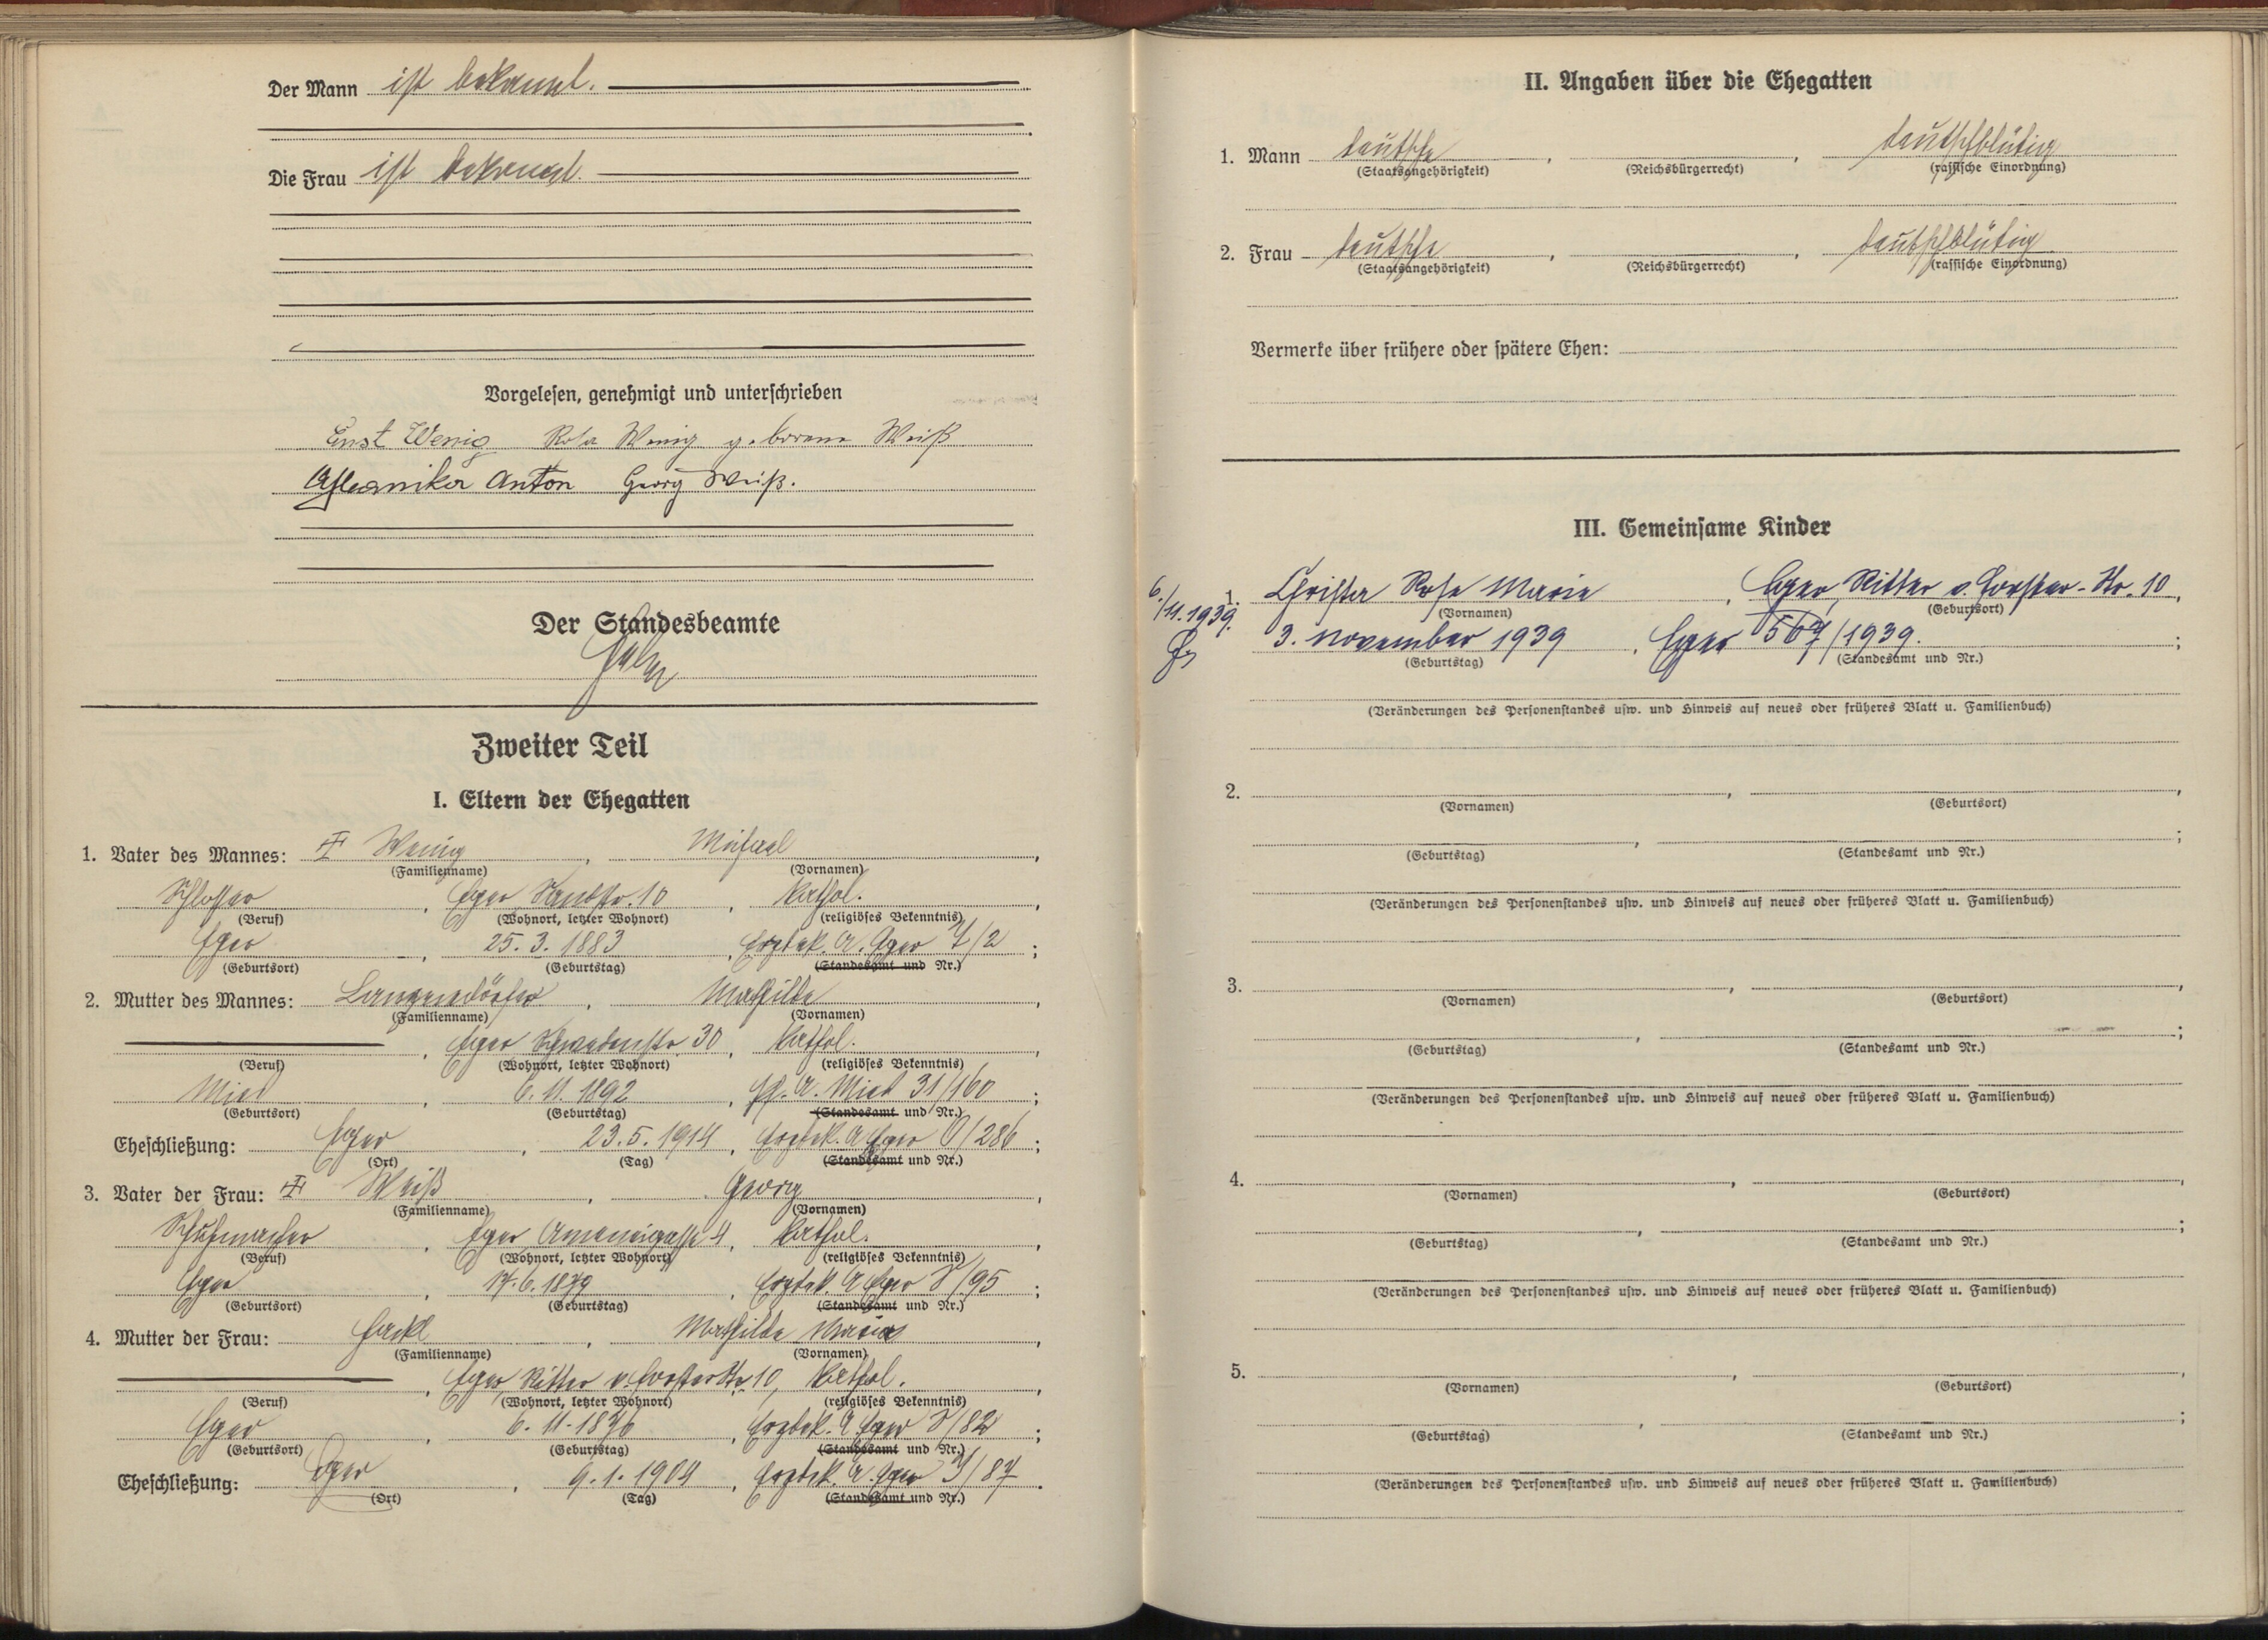 Der Mann ist bekannt.
Die Frau ist bekannt.
Vorgelesen, genehmigt und unterschrieben
Ernst Wenig Rosa Wenig geborene Weiß
Anton Georg Weiß.
Der Standesbeamte
Zweiter Teil
I. Eltern der Ehegatten
1. Vater des Mannes: Wenig, Michael,
(Familienname) (Vornamen)
Schlosser, Eger, Sandstr. 10, kathol.,
(Beruf) (Wohnort, letzter Wohnort) (religiöses Bekenntnis)
Eger, 25. 3. 1883, Erzdek. A. Eger /2;
(Geburtsort) (Geburtstag) (Standesamt und Nr.)
2. Mutter des Mannes: Langendörfer, Mathilde,
(Familienname) (Vornamen)
, Eger 30, kathol.,
(Beruf) (Wohnort, letzter Wohnort) (religiöses Bekenntnis)
Mies, 6. 11. 1892, Pf. A. Mies 31/160;
(Geburtsort) (Geburtstag) (Standesamt und Nr.)
Eheschließung: Eger, 23. 5. 1914, Erzdek. A Eger /286;
(Ort) (Tag) (Standesamt und Nr.)
3. Vater der Frau: Weiß, Georg,
(Familienname) (Vornamen)
Schuhmacher, Eger 4, kathol.,
(Beruf) (Wohnort, letzter Wohnort) (religiöses Bekenntnis)
Eger, 17. 6. 1879, Erzdek. A Eger /95;
(Geburtsort) (Geburtstag) (Standesamt und Nr.)
4. Mutter der Frau: Hackl, Mathilde Maria,
(Familienname) (Vornamen)
, Eger, Ritter v. Forster Str. 10, kathol.,
(Beruf) (Wohnort, letzter Wohnort) (religiöses Bekenntnis)
Eger, 6. 11. 1876, Erzdek. A Eger /82;
(Geburtsort) (Geburtstag) (Standesamt und Nr.)
Eheschließung: Eger, 9. 1. 1904, Erzdek. A. Eger /87.
(Ort) (Tag) (Standesamt und Nr.)
II. Angaben über die Ehegatten
1. Mann deutsche, , deutschblütig
(Staatsangehörigkeit) (Reichsbürgerrecht) (rassische Einordnung)
2. Frau deutsche, , deutschblütig
(Staatsangehörigkeit) (Reichsbürgerrecht) (rassische Einordnung)
Vermerke über frühere oder spätere Ehen:
III. Gemeinsame Kinder
6./11. 1939.
1. Christa Rosa Maria, Eger, Ritter v. Forster-Str. 10,
(Vornamen) (Geburtsort)
3. November 1939, Eger 567/1939.;
(Geburtstag) (Standesamt und Nr.)
(Veränderungen des Personenstandes usw. und Hinweis auf neues oder früheres Blatt u. Familienbuch)
2. , ,
(Vornamen) (Geburtsort)
, ;
(Geburtstag) (Standesamt und Nr.)
(Veränderungen des Personenstandes usw. und Hinweis auf neues oder früheres Blatt u. Familienbuch)
3. , ,
(Vornamen) (Geburtsort)
, ;
(Geburtstag) (Standesamt und Nr.)
(Veränderungen des Personenstandes usw. und Hinweis auf neues oder früheres Blatt u. Familienbuch)
4. , ,
(Vornamen) (Geburtsort)
, ;
(Geburtstag) (Standesamt und Nr.)
(Veränderungen des Personenstandes usw. und Hinweis auf neues oder früheres Blatt u. Familienbuch)
5. , ,
(Vornamen) (Geburtsort)
, ;
(Geburtstag) (Standesamt und Nr.)
(Veränderungen des Personenstandes usw. und Hinweis auf neues oder früheres Blatt u. Familienbuch)